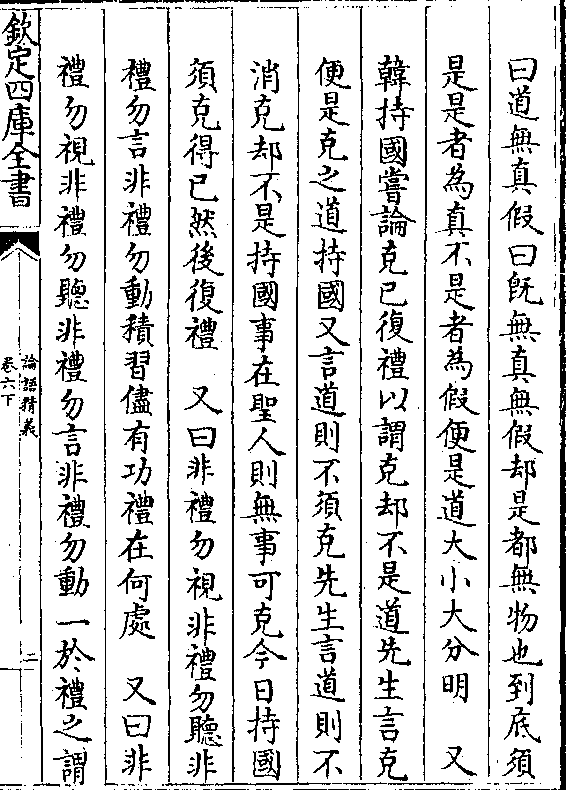 曰道無真假曰旣無真無假却是都無物也到底須
是是者為真不是者為假便是道大小大分明　又
韓持國嘗論克已復禮以謂克却不是道先生言克
便是克之道持國又言道則不須克先生言道則不
消克却不是持國事在聖人則無事可克今日持國
須克得已然後復禮　又曰非禮勿視非禮勿聽非
禮勿言非禮勿動積習儘有功禮在何處　又曰非
禮勿視非禮勿聽非禮勿言非禮勿動一於禮之謂
欽定四庫全書
論語精義
卷六下
二